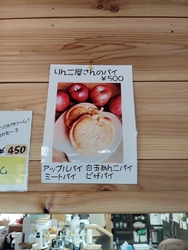 りんご屋さんのパイ
¥500
アップルパイ 白玉あんこパイ
ミートパイ ピザパイ
¥450